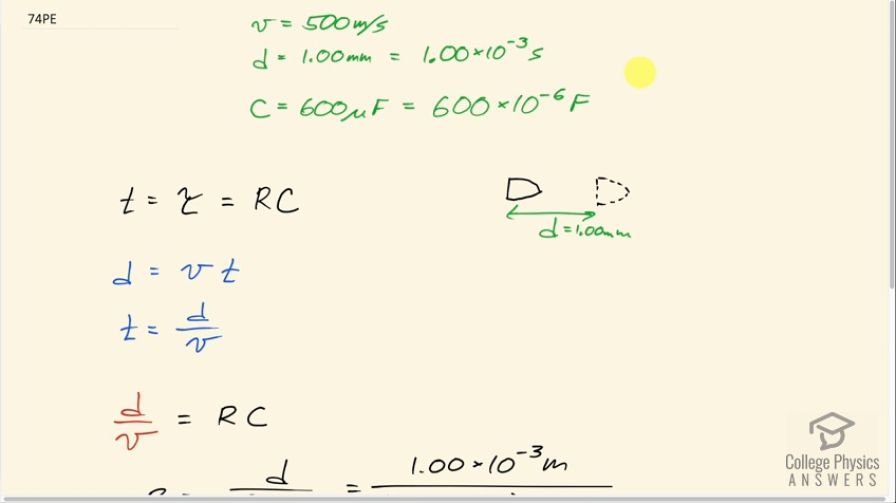 74PE
v = 500 m/s
d = 1.00mm = 1.00×10⁻³ s
C = 600μF = 600×10⁻⁶ F
t = τ = RC
d = 1.00mm
d = vt
t = d/v
d/v = RC
d = 1.00×10⁻³ m
College Physics
ANSWERS